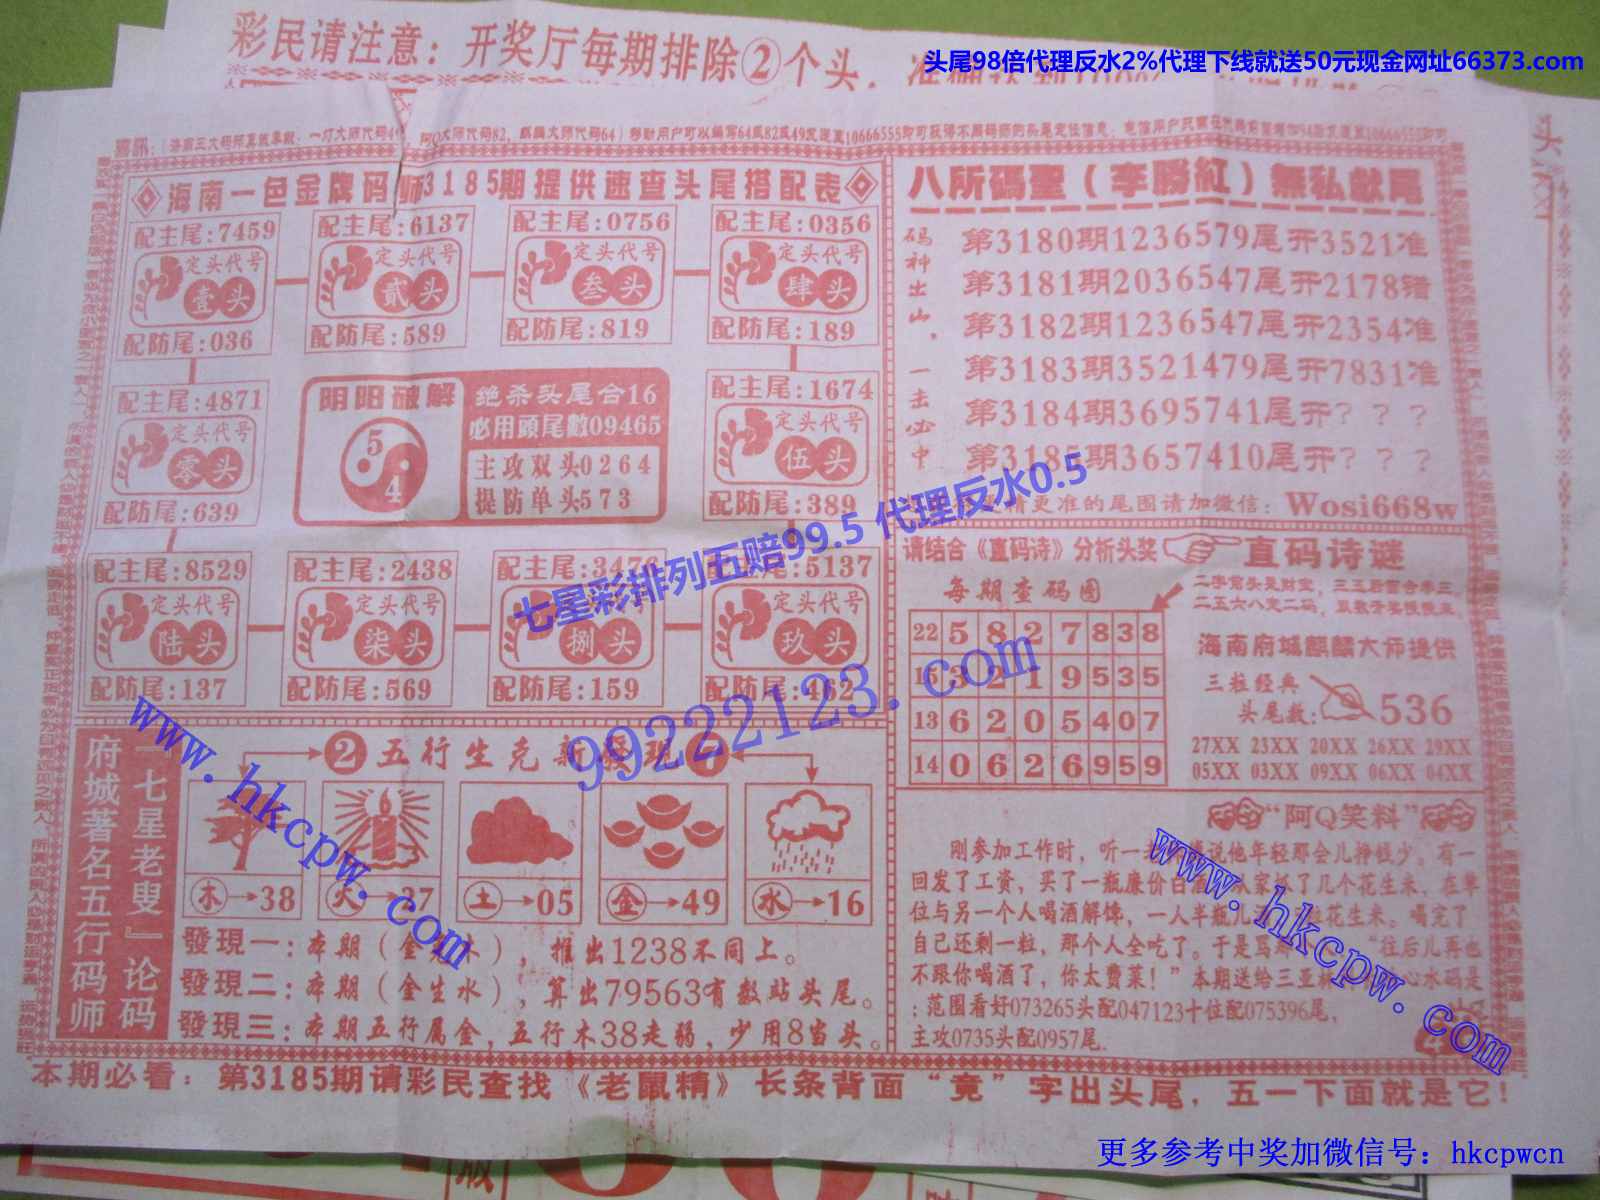 彩民请注意：开奖厅每期排除②个头，
头尾98倍代理反水2%代理下线就送50元现金网址66373.com
海南一色金牌码师3185期提供速查头尾搭配表
配主尾:7459
定头代号
壹头
配防尾:036
配主尾:6137
定头代号
贰头
配防尾:589
配主尾:0756
定头代号
叁头
配防尾:819
配主尾:0356
定头代号
肆头
配防尾:189
配主尾:4871
定头代号
零头
配防尾:639
阴阳破解
5
4
绝杀头尾合16
必用頭尾數09465
主攻双头0264
提防单头573
配主尾:1674
定头代号
伍头
配防尾:389
配主尾:8529
定头代号
陆头
配防尾:137
配主尾:2438
定头代号
柒头
配防尾:569
配主尾:3476
捌头
配防尾:159
配主尾:5137
定头代号
玖头
配防尾:462
七星彩排列五赔99.5 代理反水0.5
99222123.com
www.hkcpw.com
八所码聖（李勝紅）無私献尾
码神出山，一击必中
第3180期1236579尾开3521准
第3181期2036547尾开2178错
第3182期1236547尾开2354准
第3183期3521479尾开7831准
第3184期3695741尾开？？？
第3185期3657410尾开？？？
更准的尾围请加微信：Wosi668w
请结合《直码诗》分析头奖
直码诗谜
每期查码图
22 5 8 2 7 8 3 8
15 3 2 1 9 5 3 5
13 6 2 0 5 4 0 7
14 0 6 2 6 9 5 9
海南府城麒麟大师提供
三粒经典
头尾数:
536
27XX 23XX 20XX 26XX 29XX
05XX 03XX 09XX 06XX 04XX
府城著名五行码师
『七星老叟』论码
②五行生克新发现①
木→38
火→37
土→05
金→49
水→16
發現一：本期（金克木），推出1238不同上。
發現二：本期（金生水），算出79563有数站头尾。
發現三：本期五行属金，五行木38走弱，少用8当头。
“阿Q笑料”
刚参加工作时，听一
说他年轻那会儿挣钱少。有一
回发了工资，买了一瓶廉价白酒
从家抓了几个花生米，在单
位与另一个人喝酒解馋，一人半瓶儿
粒花生米。喝完了
自己还剩一粒，那个人全吃了。于是骂那个
“往后儿再也
不跟你喝酒了，你太费菜！”本期送给三亚
心水码是
：范围看好073265头配047123十位配075396尾，
主攻0735头配0957尾.
www.hkcpw.com
本期必看：第3185期请彩民查找《老鼠精》长条背面“竟”字出头尾，五一下面就是它！
更多参考中奖加微信号：hkcpwcn